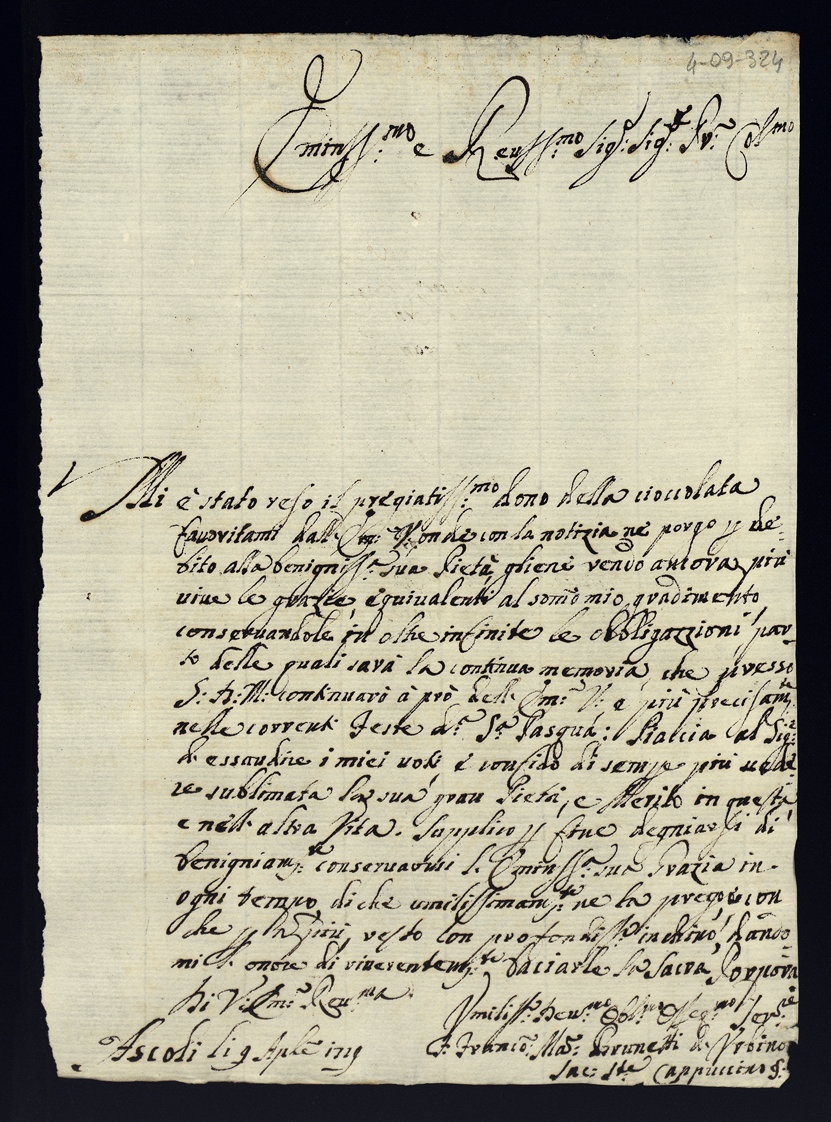 4-09-324
Eminss.mo e Reuss.mo Sig.r Sig.r Pr. Col.mo
Mi è stato reso il pregiatiss.mo dono della cioccolata
favoritami dall Em. V. onde con la notizia ne porgo p de-
bito alla benigniss.a sua Pietà gliene rendo ancora più
vive le grazie, equivalenti al som̄o mio gradimento
conservandole in oltre infinite le obbligazzioni, par-
to delle quali sarà la continua memoria, che presso
S. D. M. continuarò à prò dell Em. V. e più precisam.te
nelle correnti feste d. S.ta Pasqua: Piaccia al Sig.re
di essaudire i miei voti, e confido di sempe più vede-
re sublimata la sua gran Pietà, e Merito in questa
e nell altra Vita. Supplico p fine degniarsi di
benigniam.te conservarmi l. Eminss.a sua Grazia in
ogni tempo, di che umilissimam.te ne la prego; con
che p fine, resto con profondiss. inchino, dando-
mi l. onore di riverentem.te baciarle la Sacra Porpora
Di V. Em. Reu.ma
Umiliss. Deu.mo Obl.mo Osseq.mo Ser.re
Ascoli li 9 Aple 1719
F. Franco. Ma. Brunetti da Urbino
Sac. Cappuccino